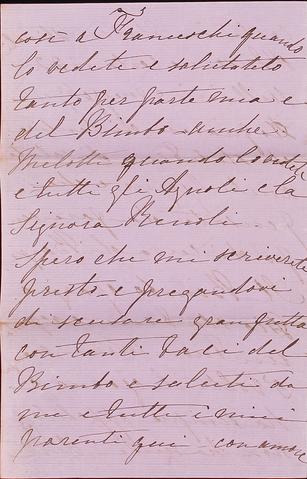 così a Franceschi quando
lo vedete e salutatelo
tanto per parte mia e
del Bimbo - anche
Melotti quando lo vedete
e tutti gli Agnoli e la
Signora Renoli
Spero che mi scriverete
presto - e pregandovi
di scusare gran fretta
con tanti baci del
Bimbo e saluti da
me e tutti i miei
parenti qui con amore